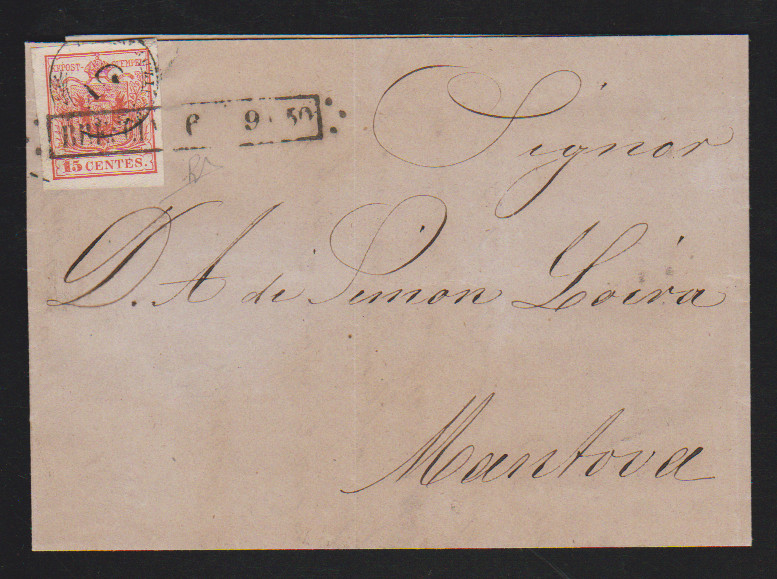 KKPOST-STEMPEL
15 CENTES.
6 9. 50
Signor
D. A di Simon Loira
Mantova